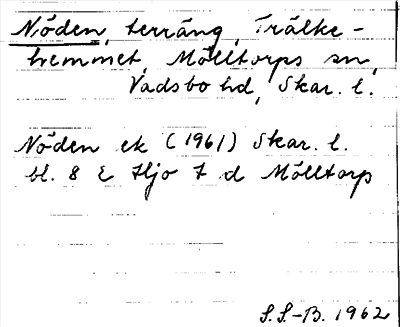 Nöden, terräng, Trälke-
hemmet, Mölltorps sn,
Vadsbo hd, Skar. l.
Nöden ek (1961) Skar. l.
bl. 8 E Hjo 7 d Mölltorp
S.S.-B. 1962